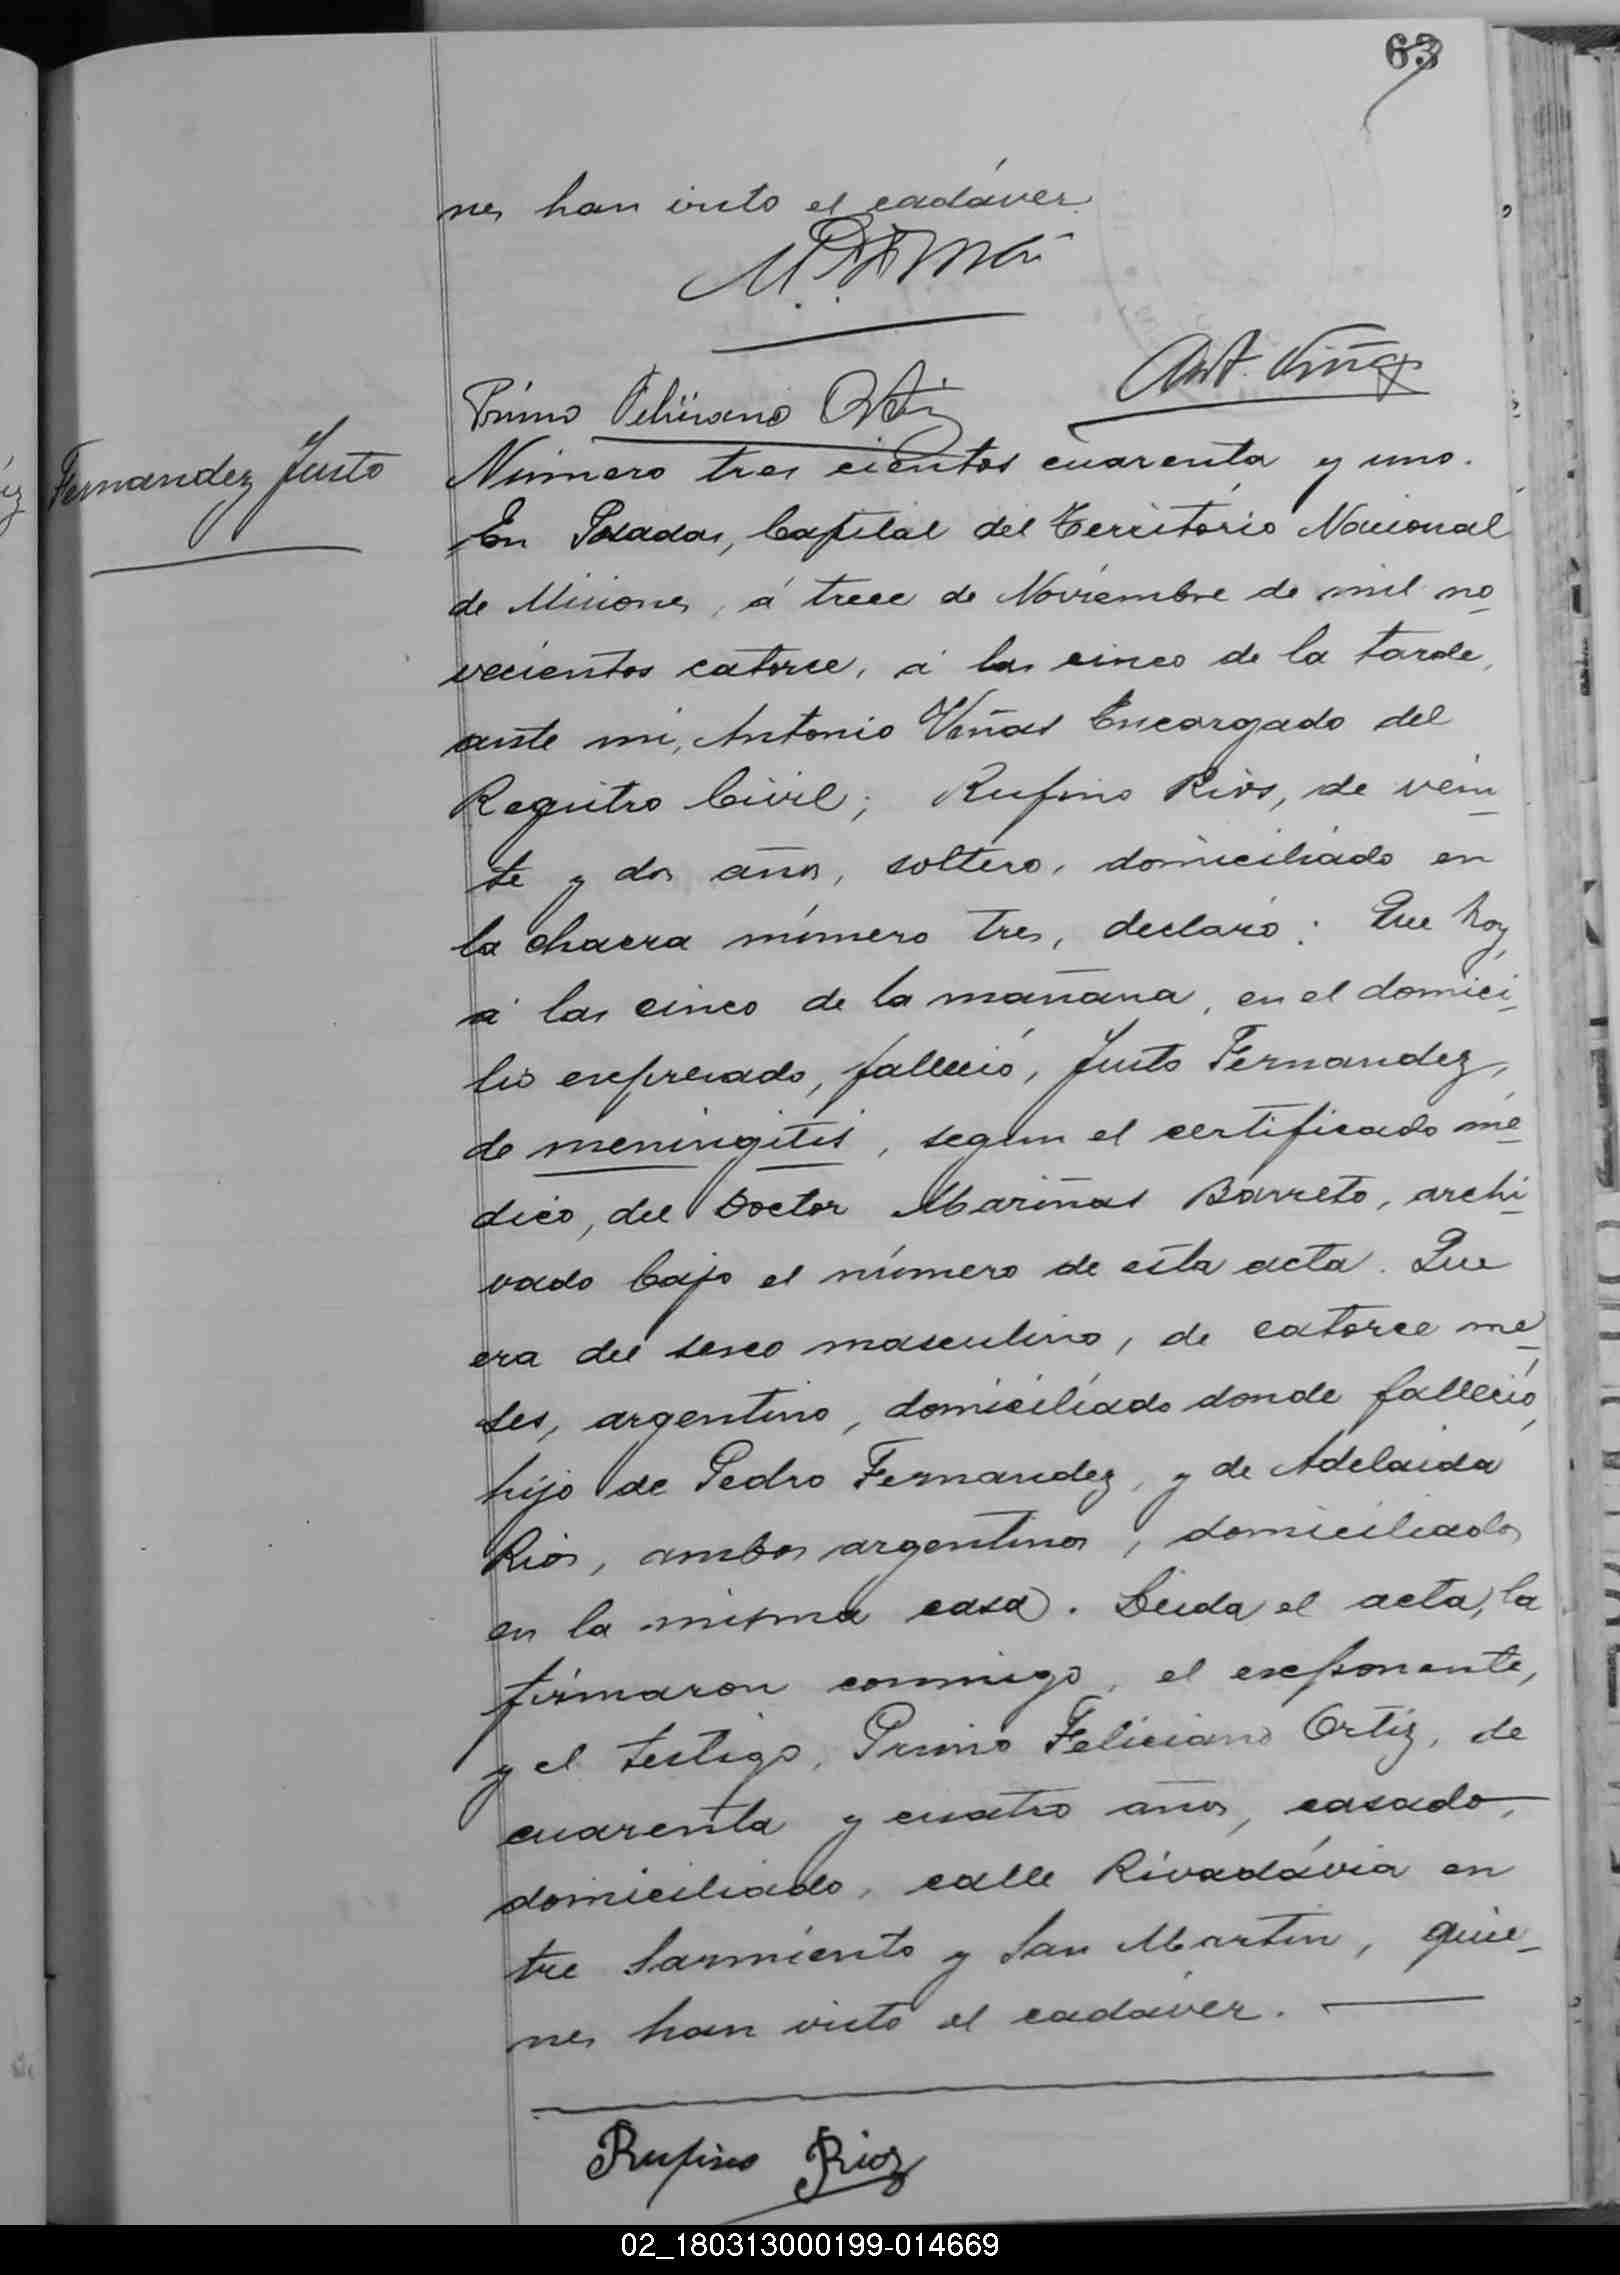 63
nes han visto el cadáver.
Ant. Viñas
Primo Feliciano Ortiz
Fernandez Justo
Número tres cientos cuarenta y uno.
En Posadas, Capital del Territorio Nacional
de Misiones, á trece de Noviembre de mil no-
vecientos catorce, á las cinco de la tarde,
ante mi, Antonio Viñas Encargado del
Registro Civil; Rufino Rios, de vein-
te y dos años, soltero, domiciliado en
la chacra número tres, declaró: Que hoy,
á las cinco de la mañana, en el domici-
lio expresado, falleció, Justo Fernandez,
de meningitis, segun el certificado mé-
dico, del Doctor Mariñas Barreto, archi-
vado bajo el número de esta acta. Que
era del sexo masculino, de catorce me-
ses, argentino, domiciliado donde falleció,
hijo de Pedro Fernandez, y de Adelaida
Rios, ambos argentinos, domiciliados
en la misma casa. Leida el acta, la
firmaron conmigo, el exponente,
y el testigo, Primo Feliciano Ortiz, de
cuarenta y cuatro años, casado,
domiciliado, calle Rivadávia en
tre Sarmiento y San Martin, quie-
nes han visto el cadáver.
Rufino Rios
02_180313000199-014669